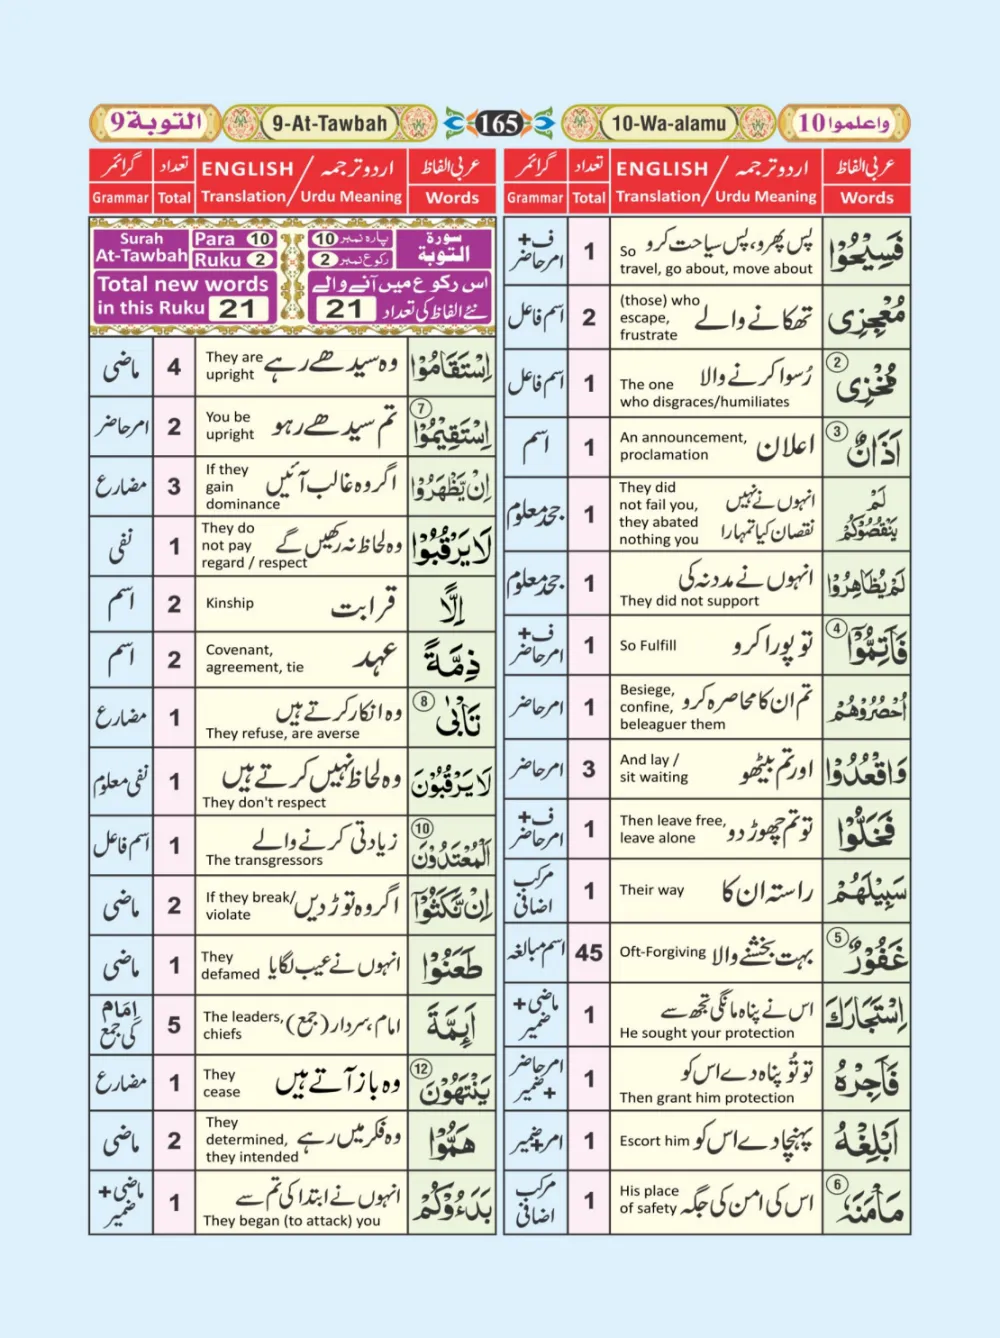 التوبة 9
9-At-Tawbah
165
10-Wa-alamu
واعلموا 10
عربی الفاظ
ENGLISH / اردو ترجمہ
تعداد
گرائمر
Words
Translation / Urdu Meaning
Total
Grammar
فَسِيْحُوْا
پس پھرو، پس سیاحت کرو
So
travel, go about, move about
1
ف +
امر حاضر
مُعْجِزِی
تھکانے والے
(those) who
escape,
frustrate
2
اسم فاعل
②
مُخْزِی
رُسوا کرنے والا
The one
who disgraces/humiliates
1
اسم فاعل
③
اَذَانٌ
اعلان
An announcement,
proclamation
1
اسم
لَمْ
يَنْقُصُوْكُمْ
انہوں نے نہیں
نقصان کیا تمہارا
They did
not fail you,
they abated
nothing you
1
جحد معلوم
لَمْ يُظَاهِرُوْا
انہوں نے مدد نہ کی
They did not support
1
جحد معلوم
④
فَاَتِمُّوْٓا
تو پورا کرو
So Fulfill
1
ف +
امر حاضر
اُحْصُرُوْهُمْ
تم ان کا محاصرہ کرو
Besiege,
confine,
beleaguer them
1
امر حاضر
وَاقْعُدُوْا
اور تم بیٹھو
And lay /
sit waiting
3
امر حاضر
فَخَلُّوْا
تو تم چھوڑ دو
Then leave free,
leave alone
1
ف +
امر حاضر
سَبِيْلَهُمْ
راستہ ان کا
Their way
1
مرکب
اضافی
⑤
غَفُوْرٌ
بہت بخشنے والا
Oft-Forgiving
45
اسم مبالغہ
اِسْتَجَارَكَ
اس نے پناہ مانگی تجھ سے
He sought your protection
1
ماضی +
ضمیر
فَاَجِرْهُ
تو تُو پناہ دے اس کو
Then grant him protection
1
امر حاضر
+ ضمیر
اَبْلِغْهُ
پہنچا دے اس کو
Escort him
1
امر + ضمیر
⑥
مَأْمَنَهٗ
اس کی امن کی جگہ
His place
of safety
1
مرکب
اضافی
عربی الفاظ
ENGLISH / اردو ترجمہ
تعداد
گرائمر
Words
Translation / Urdu Meaning
Total
Grammar
Surah
At-Tawbah
Para 10
Ruku 2
پارہ نمبر 10
رکوع نمبر 2
سورة
التوبة
Total new words
in this Ruku 21
اس رکوع میں آنے والے
نئے الفاظ کی تعداد 21
اِسْتَقَامُوْا
وہ سیدھے رہے
They are
upright
4
ماضی
⑦
اِسْتَقِيْمُوْا
تم سیدھے رہو
You be
upright
2
امر حاضر
اِنْ يَّظْهَرُوْا
اگر وہ غالب آئیں
If they
gain
dominance
3
مضارع
لَا يَرْقُبُوْا
وہ لحاظ نہ رکھیں گے
They do
not pay
regard / respect
1
نفی
اِلًّا
قرابت
Kinship
2
اسم
ذِمَّةً
عہد
Covenant,
agreement, tie
2
اسم
⑧
تَأْبٰى
وہ انکار کرتے ہیں
They refuse, are averse
1
مضارع
لَا يَرْقُبُوْنَ
وہ لحاظ نہیں کرتے ہیں
They don't respect
1
نفی معلوم
⑩
اَلْمُعْتَدُوْنَ
زیادتی کرنے والے
The transgressors
1
اسم فاعل
اِنْ نَّكَثُوْٓا
اگر وہ توڑ دیں
If they break/
violate
2
ماضی
طَعَنُوْا
انہوں نے عیب لگایا
They
defamed
1
ماضی
اَىِٕمَّةَ
امام، سردار (جمع)
The leaders,
chiefs
5
اِمَام
کی جمع
⑫
يَنْتَهُوْنَ
وہ باز آتے ہیں
They
cease
1
مضارع
هَمُّوْا
وہ فکر میں رہے
They
determined,
they intended
2
ماضی
بَدَءُوْكُمْ
انہوں نے ابتدا کی تم سے
They began (to attack) you
1
ماضی +
ضمیر